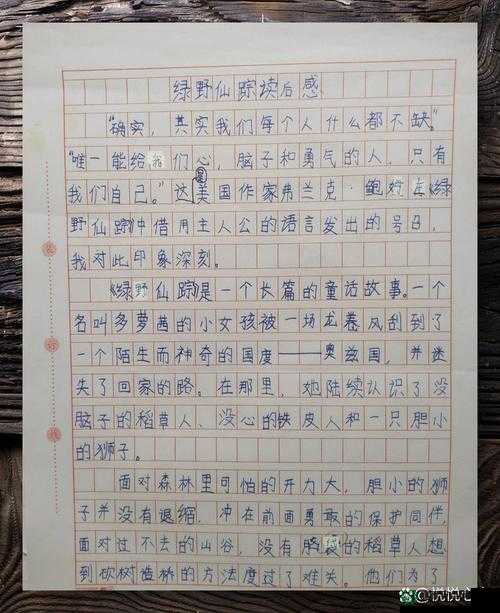 绿野仙踪读后感
“确实，其实我们每个人什么都不缺。”
“唯一能给我们心，脑子和勇气的人，只有
我们自己。”这美国作家弗兰克·鲍 在《绿
野仙踪》中借用主人公的语言发出的号召，
我对此印象深刻。
《绿野仙踪》是一个长篇的童话故事。一个
名叫多萝茜的小女孩被一场龙卷风刮到了
一个陌生而神奇的国度——奥兹国，并迷
失了回家的路。在那里，她陆续认识了没
脑子的稻草人、没心的铁皮人和一只胆小
的狮子。
面对森林里可怕的开力大，胆小的狮
子并没有退缩，冲在前面勇敢的保护同伴，
面对过不去的山谷，没有脑 的稻草人想
到砍树造桥的方法度过了难关。他们为了